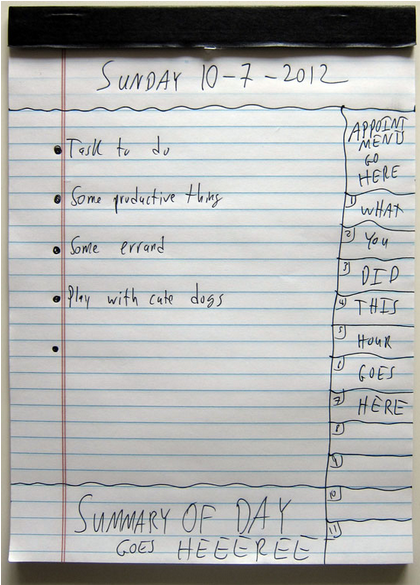 SUNDAY 10-7-2012
• Task to do
• Some productive thing
• Some errand
• Play with cute dogs
•
APPOINT
MENTS
GO
HERE
1 WHAT
2 YOU
3 DID
4 THIS
5 HOUR
6 GOES
7 HERE
8
9
10
11
SUMMARY OF DAY
GOES HEEEREE